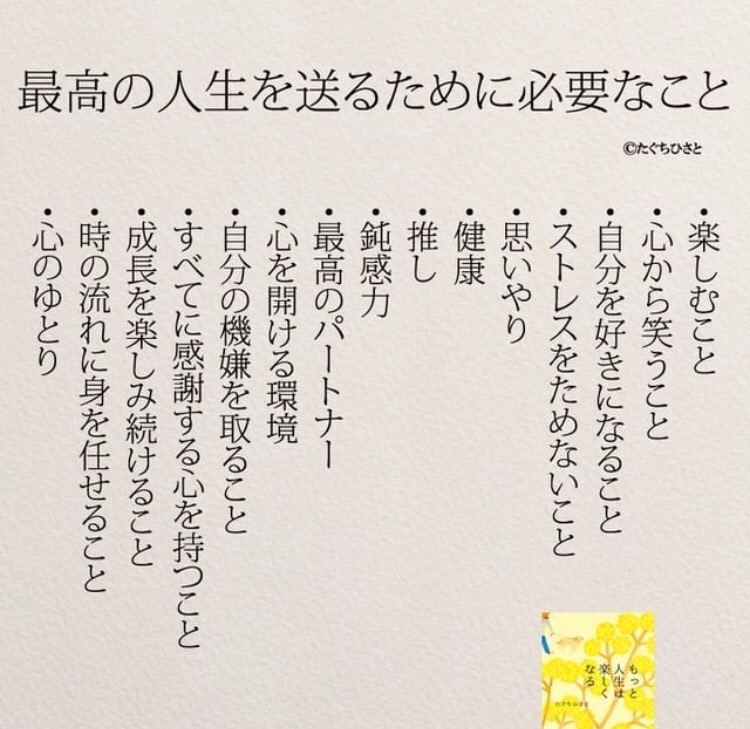 最高の人生を送るために必要なこと
©たぐちひさと
・楽しむこと
・心から笑うこと
・自分を好きになること
・ストレスをためないこと
・思いやり
・健康
・推し
・鈍感力
・最高のパートナー
・心を開ける環境
・自分の機嫌を取ること
・すべてに感謝する心を持つこと
・成長を楽しみ続けること
・時の流れに身を任せること
・心のゆとり
もっと
人生は
楽しく
なる
たぐちひさと